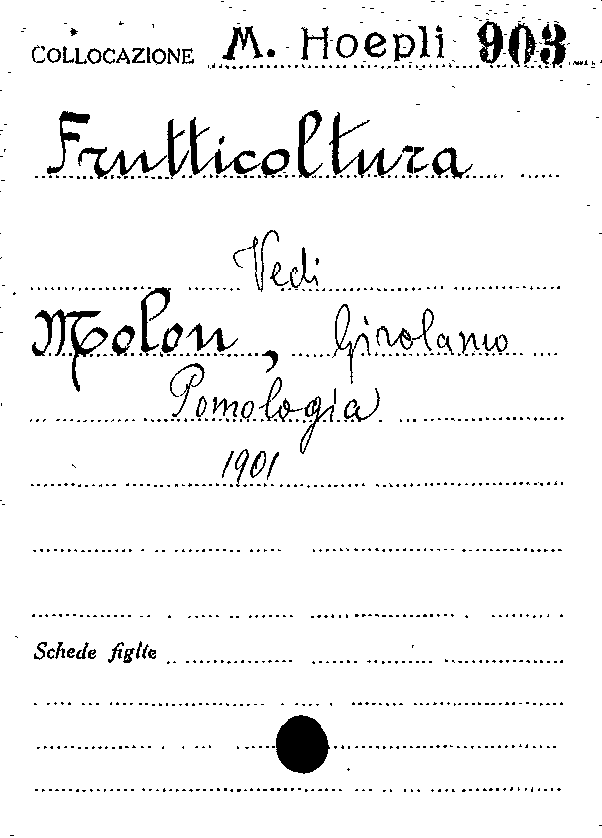 COLLOCAZIONE M. Hoepli 903
Frutticoltura
Vedi
Molon, Girolamo
Pomologia
1901
Schede figlie